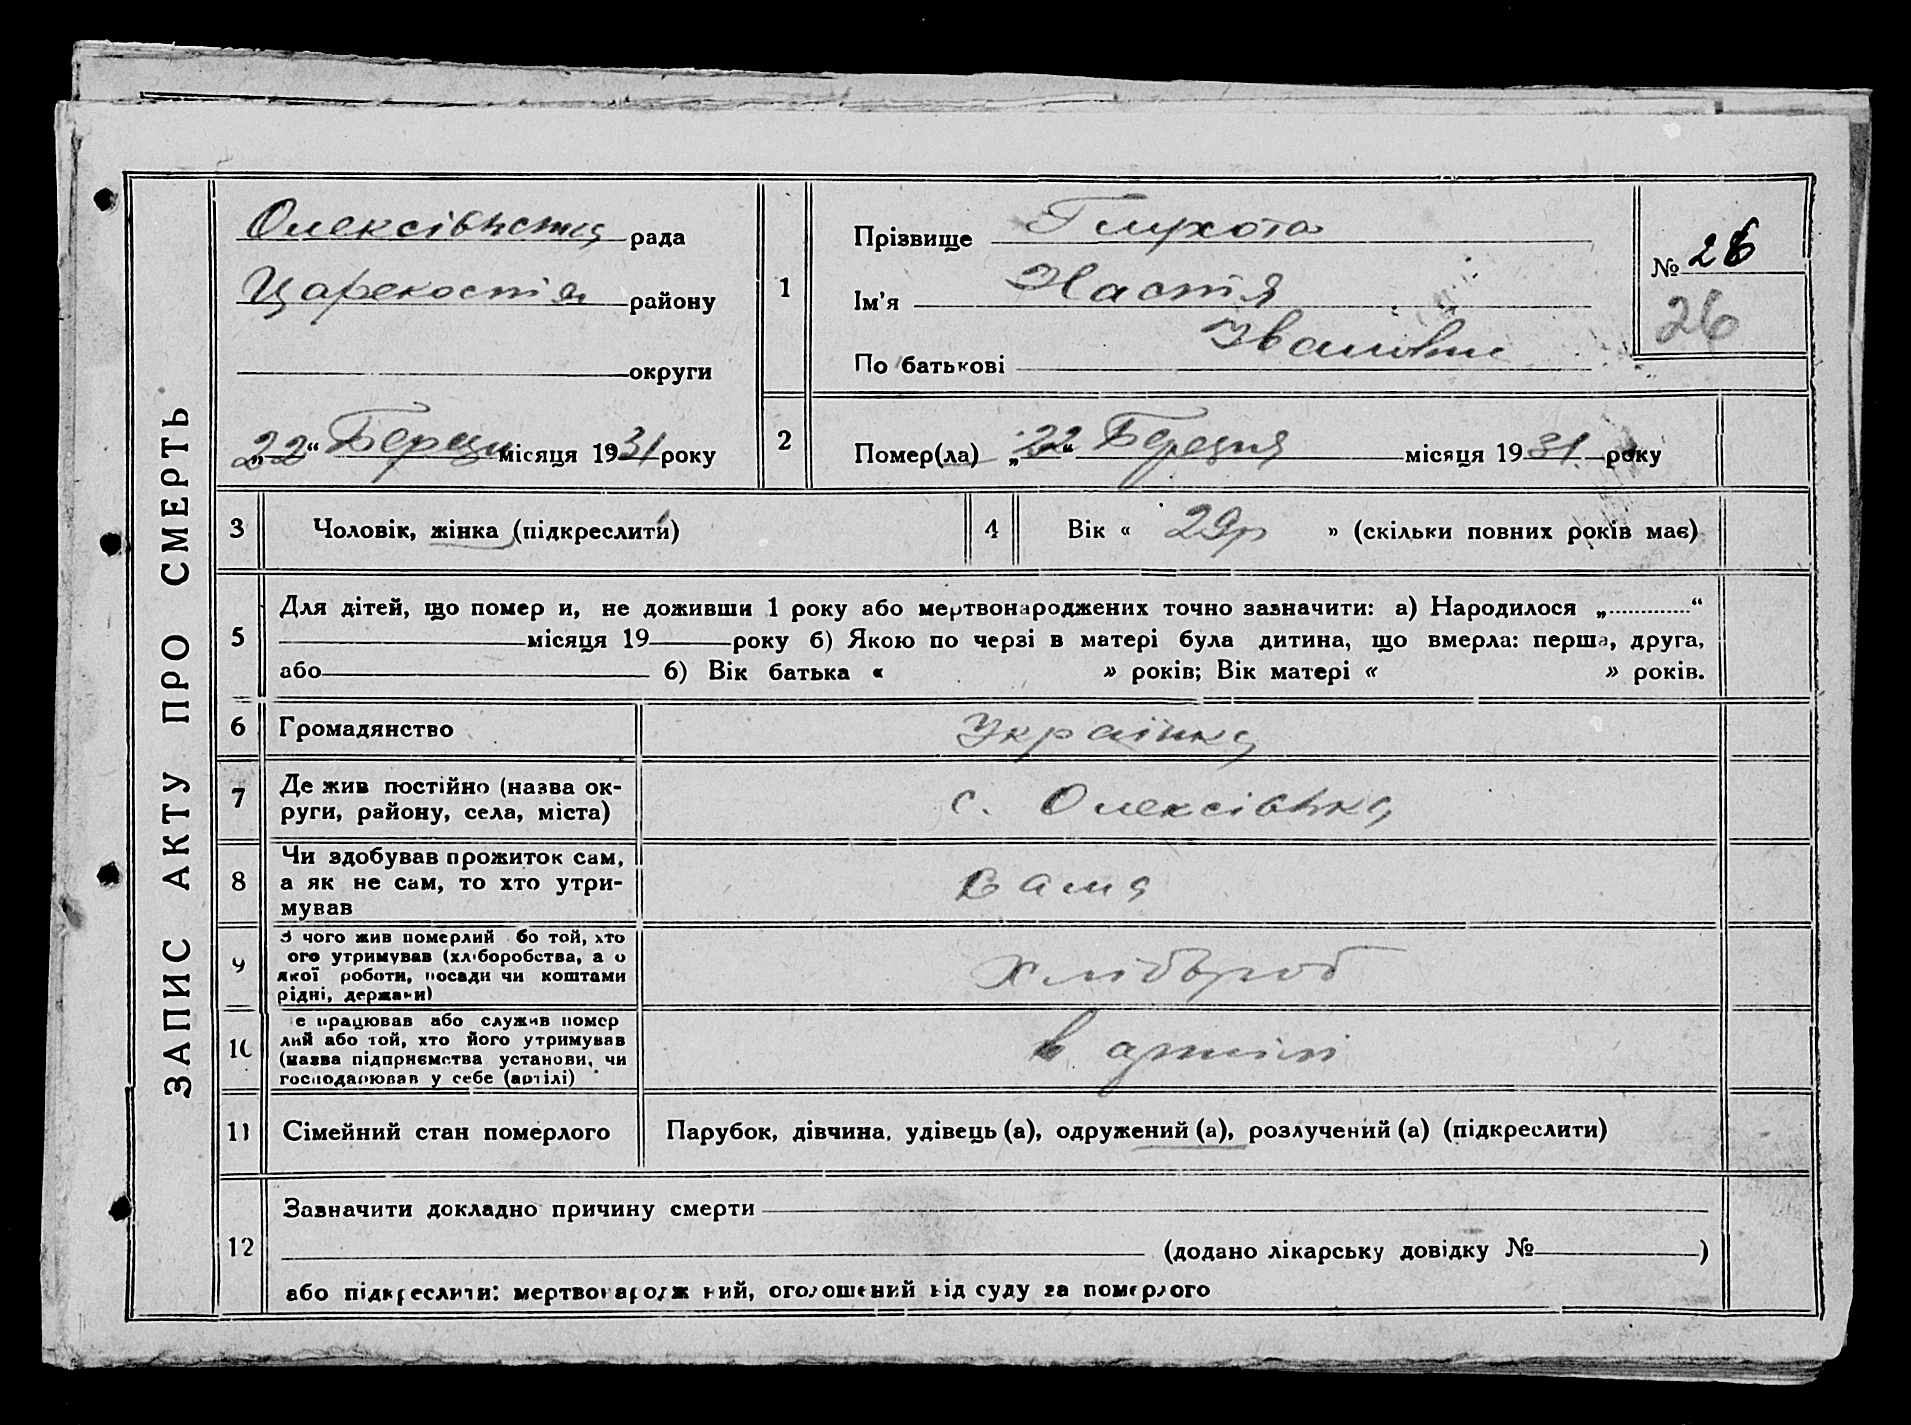 ЗАПИС АКТУ ПРО СМЕРТЬ
Олексівська рада
району
округи
„22“ Берез місяця 1931 року
1
Прізвище Глухота
Ім'я Настя
По батькові Івановна
№ 26
26
2
Помер(ла) „22“ Березня місяця 1931 року
3
Чоловік, жінка (підкреслити)
4
Вік « 29р » (скільки повних років має)
5
Для дітей, що помер и, не доживши 1 року або мертвонароджених точно зазначити: а) Народилося „............“
місяця 19 року б) Якою по черзі в матері була дитина, що вмерла: перша, друга,
або б) Вік батька « » років; Вік матері « » років.
6
Громадянство
Українка
7
Де жив постійно (назва ок-
руги, району, села, міста)
с. Олексівка
8
Чи здобував прожиток сам,
а як не сам, то хто утри-
мував
сама
9
З чого жив померлий бо той, хто
ого утримував (хліборобства, а о
якої роботи, посади чи коштами
рідні, держави)
хлібороб
10
е працював або служив помер
лий або той, хто його утримував
(назва підприємства установи, чи
господарював у себе (артілі)
в артілі
11
Сімейний стан померлого
Парубок, дівчина, удівець (а), одружений (а), розлучений (а) (підкреслити)
12
Зазначити докладно причину смерти
(додано лікарську довідку № )
або підкреслити: мертвонародж ний, оголошений від суду за померлого